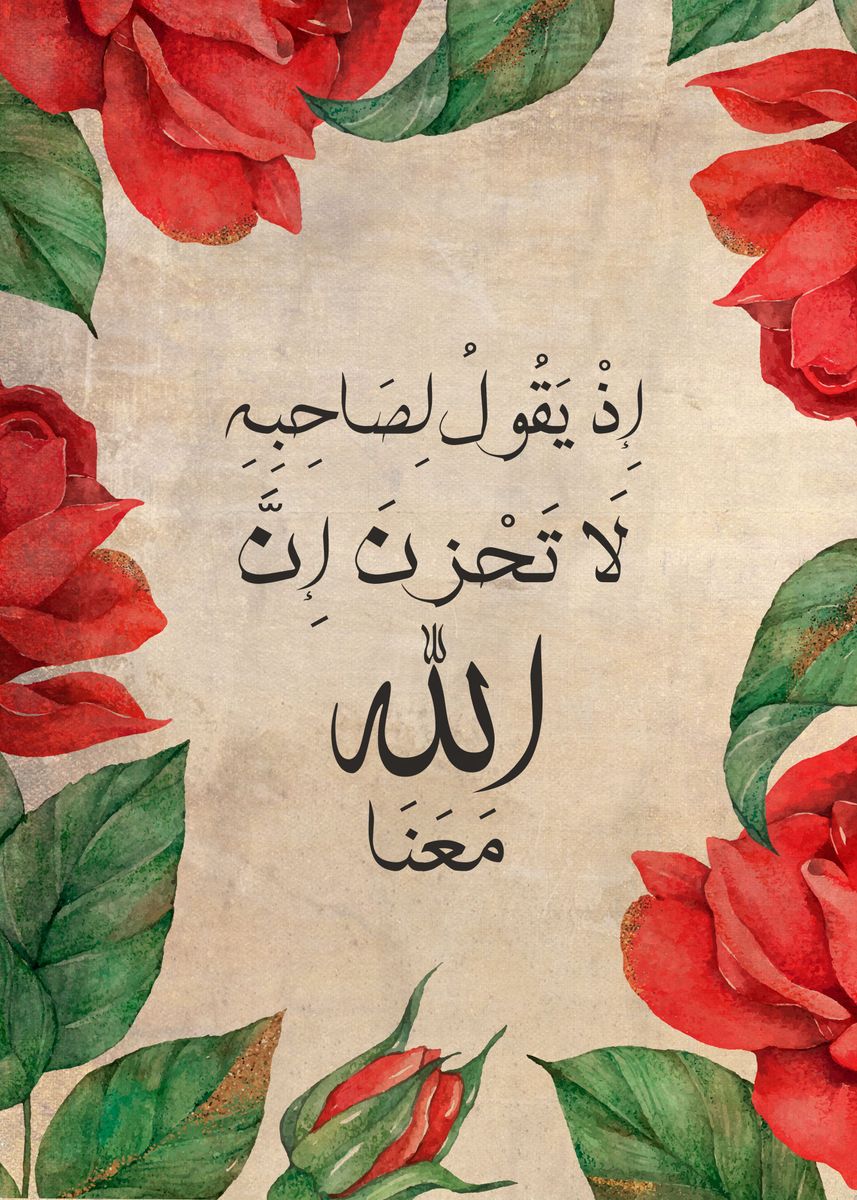 إِذْ يَقُولُ لِصَاحِبِهِ
لَا تَحْزنَ إِنَّ
اللّه
مَعَنَا